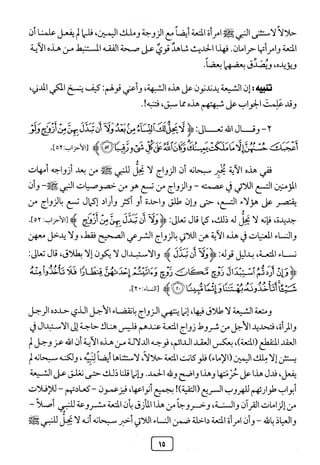 حلالاً لاستثنى النبي ﷺ امرأة المتعة أيضاً مع الزوجة وملك اليمين، فلما لم يفعل علمنا أن
المتعة وامرأتها حرامان. فهذا الحديث شاهدٌ قويٌ على صحة الفقه المستنبط من هذه الآية
ويؤيده، ويُصَدِّق بعضهما بعضاً.
تنبيه: إن الشيعة يدندنون على هذه الشبهة، وأعني قولهم: كيف ينسخ المكي المدني،
وقد عَلِمتَ الجواب على شبهتهم هذه مما سبق، فتنبه!.
٢- وقال الله تعالى: ﴿ لَّا يَحِلُّ لَكَ ٱلنِّسَآءُ مِنۢ بَعْدُ وَلَآ أَن تَبَدَّلَ بِهِنَّ مِنْ أَزْوَٰجٍ وَلَوْ
أَعْجَبَكَ حُسْنُهُنَّ إِلَّا مَا مَلَكَتْ يَمِينُكَ وَكَانَ ٱللَّهُ عَلَىٰ كُلِّ شَىْءٍ رَّقِيبًا ۝٥٢ ﴾ [الأحزاب:٥٢].
ففي هذه الآية يُخْبِر سبحانه أن الزواج لا يحلُّ للنبي ﷺ من بعد أزواجه أمهات
المؤمنين التسع اللاتي في عصمته - والزواج من تسع هو من خصوصيات النبي ﷺ- وأن
يقتصر على هؤلاء التسع، حتى وإن طلق واحدة أو أكثر وأراد إكمال تسع بالزواج من
جديدة، فإنه لا يحلُّ له ذلك، كما قال تعالى: ﴿وَلَآ أَن تَبَدَّلَ بِهِنَّ مِنْ أَزْوَٰجٍ ﴾ [الأحزاب: ٥٢].
والنساء المعنيات في هذه الآية هن اللاتي بالزواج الشرعي الصحيح فقط، ولا يدخل معهن
نساء المتعة، بدليل قوله: ﴿وَلَآ أَن تَبَدَّلَ ﴾ والاستبدال لا يكون إلا بطلاق، قال تعالى:
﴿ وَإِنْ أَرَدتُّمُ ٱسْتِبْدَالَ زَوْجٍ مَّكَانَ زَوْجٍ وَءَاتَيْتُمْ إِحْدَىٰهُنَّ قِنطَارًا فَلَا تَأْخُذُوا۟ مِنْهُ
شَيْـًٔا أَتَأْخُذُونَهُۥ بُهْتَٰنًا وَإِثْمًا مُّبِينًا ۝٢٠ ﴾ [النساء:٢٠].
ومتعة الشيعة لا طلاق فيها، إنما ينتهي الزواج بانقضاء الأجل الذي حدده الرجل
والمرأة، فتحديد الأجل من شروط زواج المتعة عندهم فليس هناك حاجة إلى الاستبدال في
العقد المنقطع (المتعة)، بعكس العقد الدائم، فوجه الدلالة من هذه الآية أن الله عز وجل لم
يستثن إلا ملك اليمين (الإماء) فلو كانت المتعة حلالاً، لاستثناها أيضاً لِنَبِيِّه ، ولكنه سبحانه لم
يفعل، فدل هذا على حُرْمَتها وهذا واضح ولله الحمد. وإنما قلنا ذلك حتى نغلق على الشيعة
أبواب طوارئهم للهروب السريع (التقية)! بجميع أنواعها، فيزعمون - كعادتهم - للإفلات
من إلزامات القرآن والسنة، وخروجاً من هذا المأزق بأن المتعة مشروعة للنبي أصلاً -
والعياذ بالله - وأن امرأة المتعة داخلة ضمن النساء اللاتي أخبر سبحانه أنه لا يَحِلُّ للنبي ﷺ
١٥